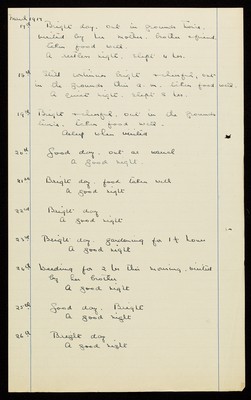 March 1919.
17th Bright day, out in grounds twice,
visited by his mother, brother & friend.
taken food well.
A restless night. slept 4 hrs.
18th Still continues bright & cheerful, out
in the grounds this a.m. taken food well.
A quiet night. slept hrs.
19th Bright & cheerful, out in the grounds
twice, taken food well.
Asleep when visited
20th Good day, out as usual
A good night.
21st Bright day food taken well
A good night
22nd Bright day
A good night
23rd Bright day. gardening for 1½ hours
A good night
24th Weeding for 2 hrs this morning, visited
by his brother
A good night
25th Good day. Bright
A good night
26th Bright day
A good night